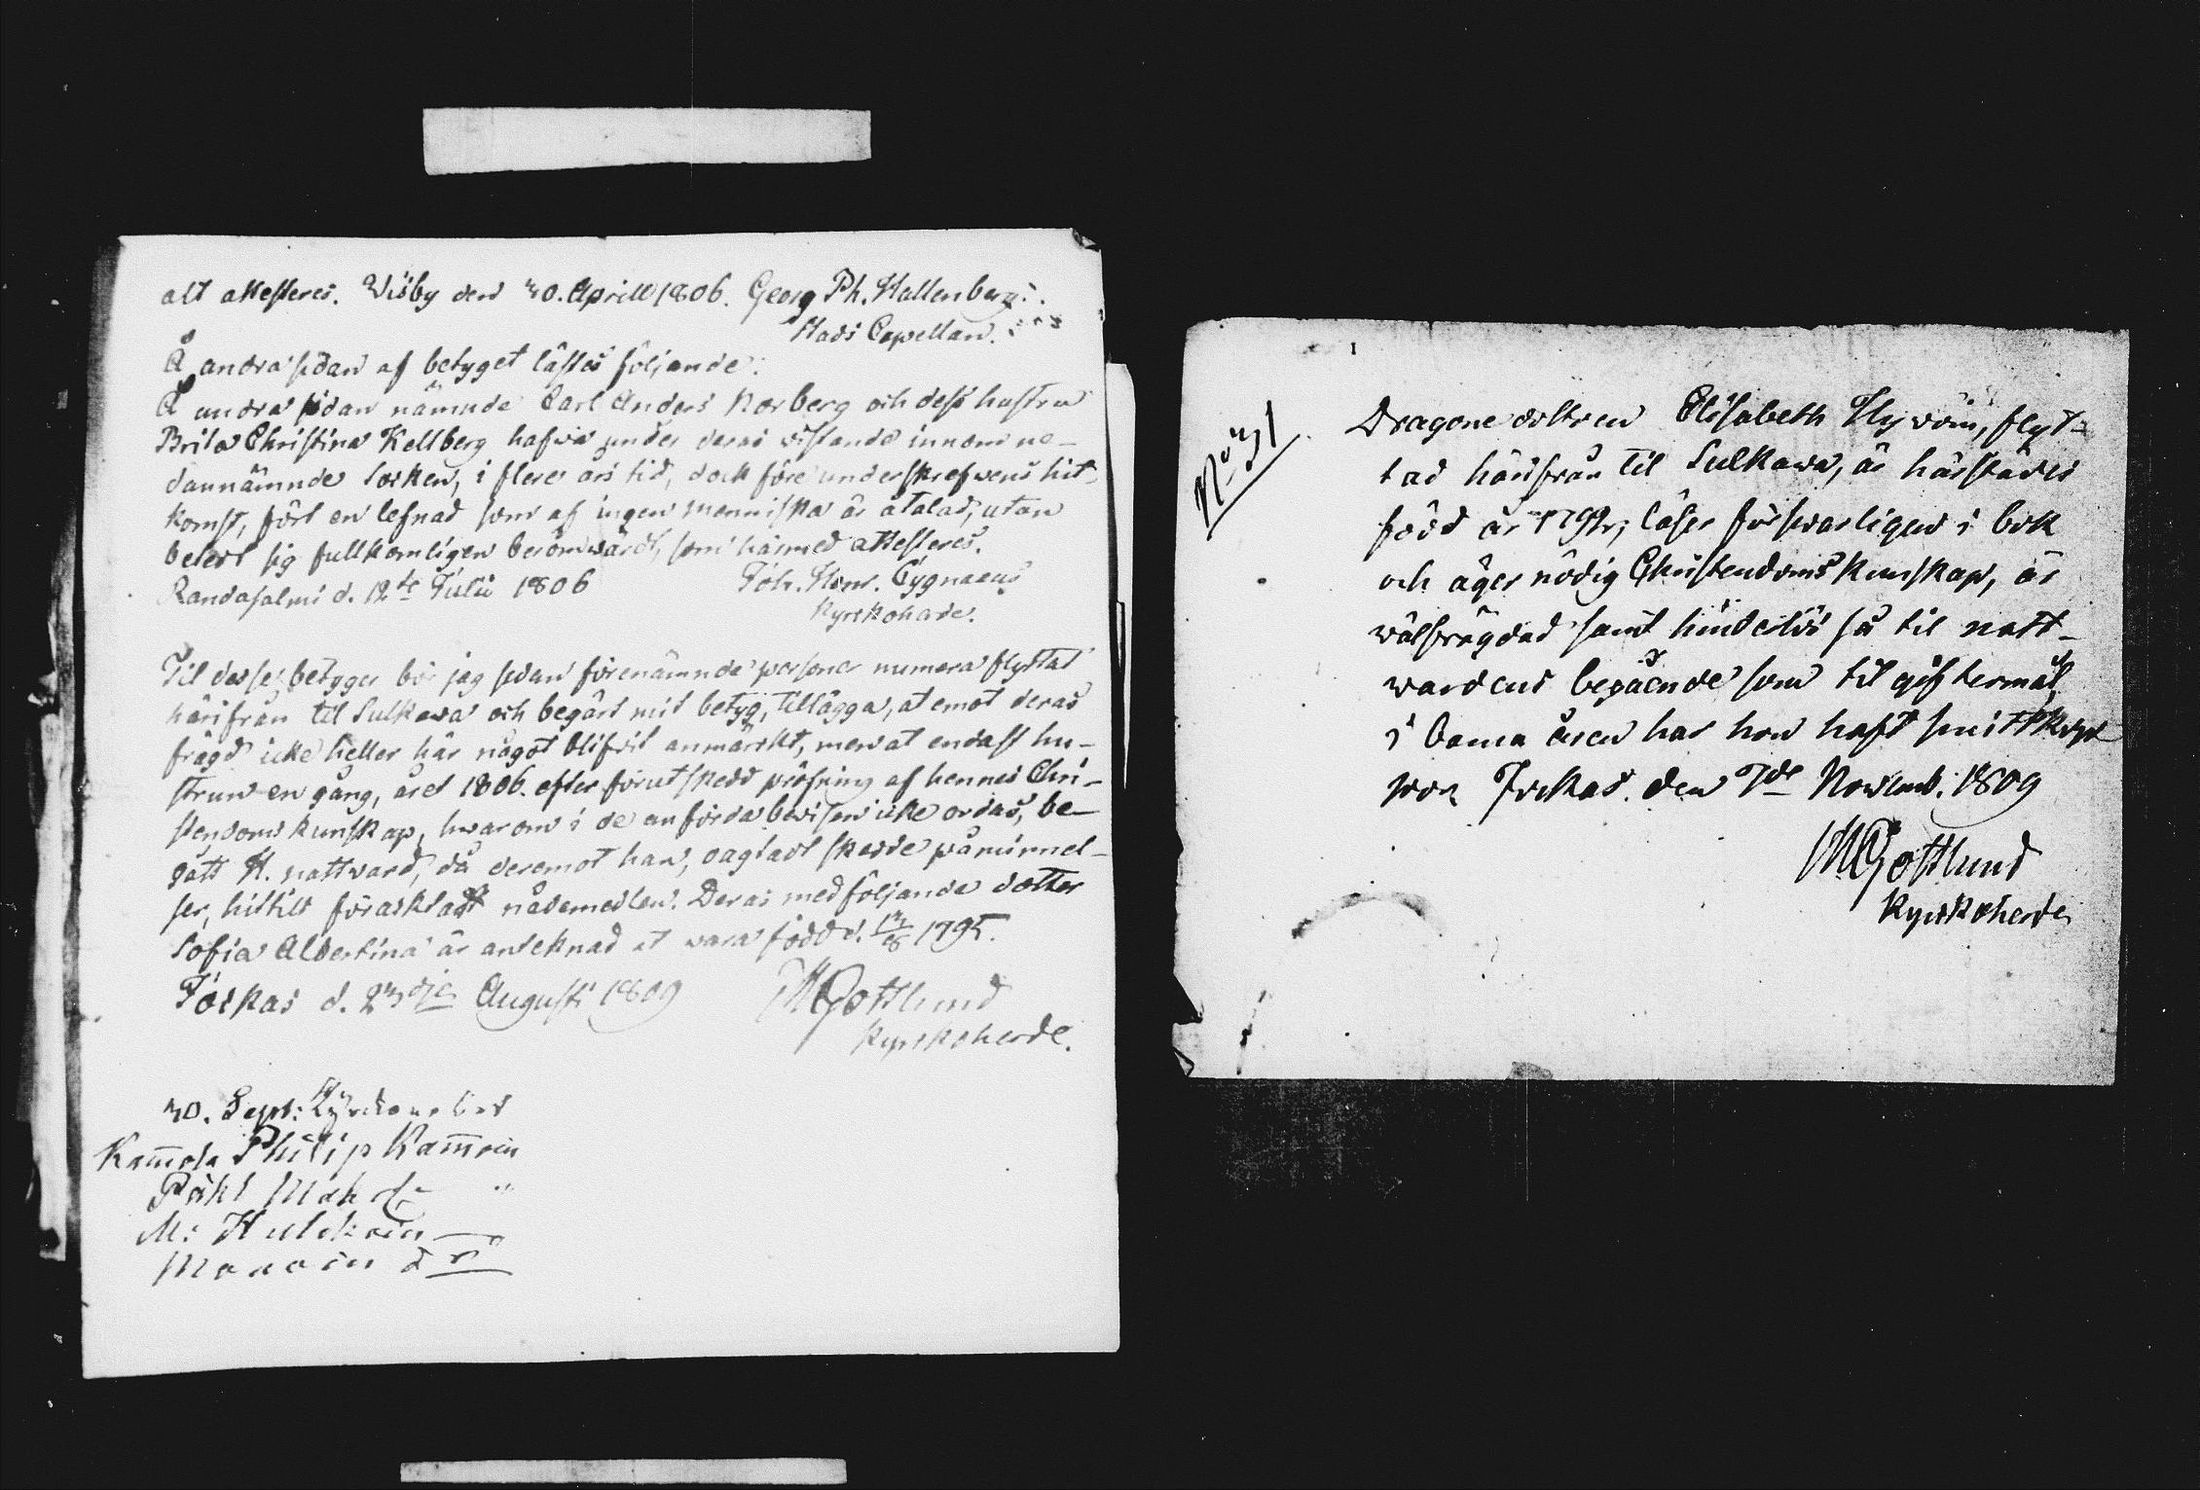 alt attesteres. Wisby den 30. Aprill 1806. Georg Ph. Hallenberg.
Stads Capellan.
Å andra sidan af betyget låstes följande:
Å andra sidan nämnde Carl Anders Norberg och dess hustru
Brita Christina Kellberg hafwa under deras wistande innom ne-
dannämnde Socken, i flere års tid, dock före underskrefwens hit-
komst, fört en lefnad som af ingen menniska är åtalad, utan
betedt sig fullkomligen berömwärdt, som härmed attesteres.
Randasalmi d. 12te Julii 1806 Joh. Henr. Cygnaeus
Kyrkoherde.
Til desse betyger bör jag sedan förenämnde personer numera flyttat
härifrån til Sulkawa och begärt mit betyg, tillägga, at emot deras
frägd icke heller här något blifwit anmärkt, men at endast hu-
strun en gång, året 1806. efter förut skedd pröfning af hennes Chri-
stendoms kunskap, hwarom i de anförda bewisen icke ordas, be-
gått H. nattward, då deremot han, oagtadt skedde påminnel-
ser, hittils föraktadt nådemedlen. Deras medföljande dotter
Sofia Albertina är anteknad at wara född d. 13/8 1795.
Jockas d. 23dje Augusti 1809 MGottlund
Kyrkoherde.
30. Sept:
Philip
M:
Dragone dottren Elisabeth flyt-
tad härifrån til Sulkawa, är härstädes
född år 1792, läser förswarligen i bok
och äger nödig Christendoms kunskap, är
wälfrägdad samt hinderlös så til natt-
wardens begående som til giftermål,
i barna åren har hon haft smittkop-
por Jockas den 7de Novemb. 1809
MGottlund
Kyrkoherde